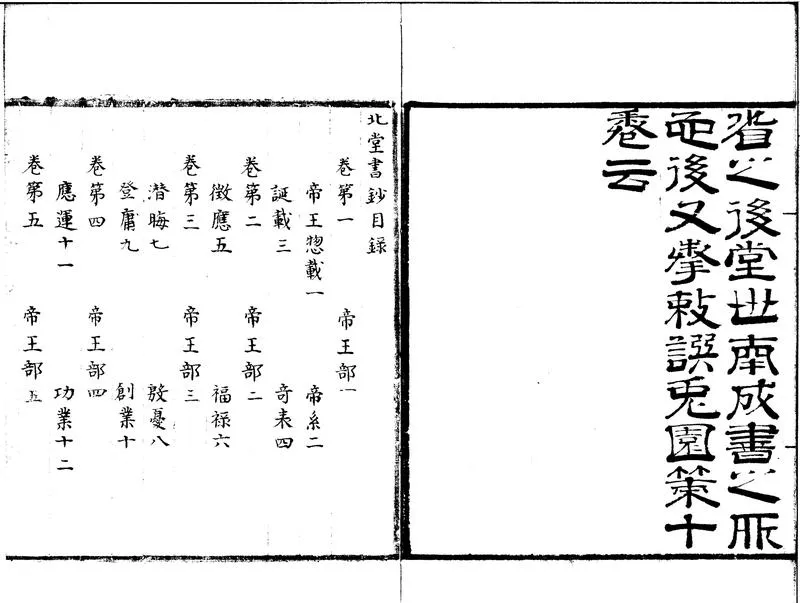 省之後堂世南成書之所
也後又奉敕譔兔園策十
卷云
北堂書鈔目録
卷第一 帝王部一
帝王惣載一 帝系二
誕載三 奇表四
卷第二 帝王部二
徵應五 福禄六
卷第三 帝王部三
潜晦七 殷憂八
登庸九 創業十
卷第四 帝王部四
應運十一 功業十二
卷第五 帝王部五